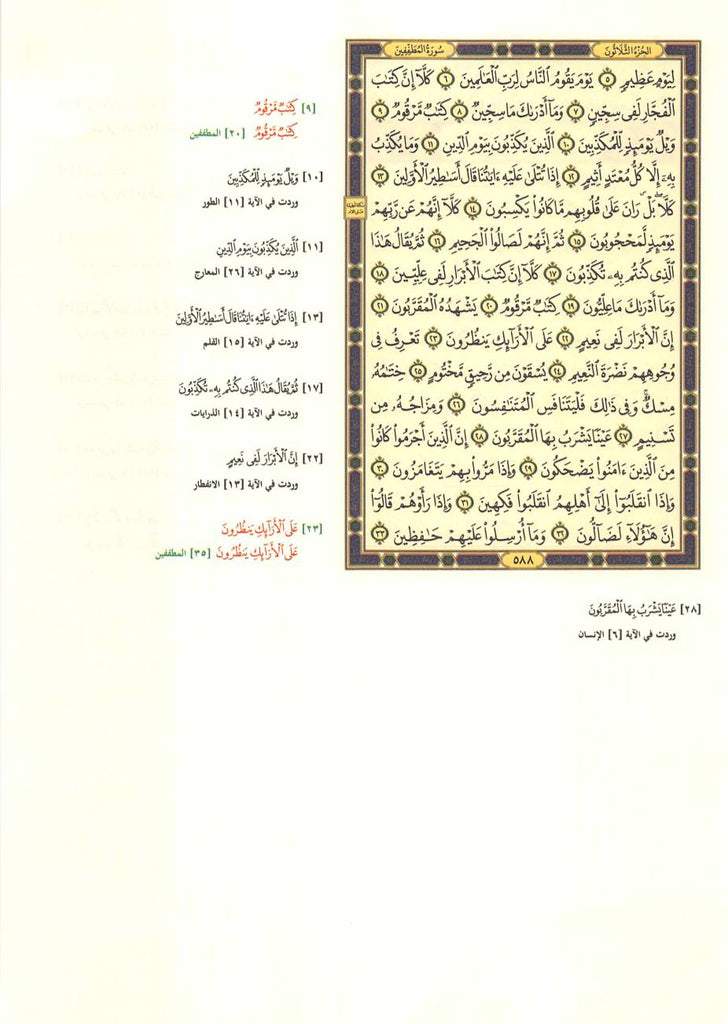 الجزء الثلاثون
سورة المطففين
لِيَوْمٍ عَظِيمٍ ٥ يَوْمَ يَقُومُ ٱلنَّاسُ لِرَبِّ ٱلْعَٰلَمِينَ ٦ كَلَّآ إِنَّ كِتَٰبَ
ٱلْفُجَّارِ لَفِى سِجِّينٍ ٧ وَمَآ أَدْرَىٰكَ مَا سِجِّينٌ ٨ كِتَٰبٌ مَّرْقُومٌ ٩
وَيْلٌ يَوْمَئِذٍ لِّلْمُكَذِّبِينَ ١٠ ٱلَّذِينَ يُكَذِّبُونَ بِيَوْمِ ٱلدِّينِ ١١ وَمَا يُكَذِّبُ
بِهِۦٓ إِلَّا كُلُّ مُعْتَدٍ أَثِيمٍ ١٢ إِذَا تُتْلَىٰ عَلَيْهِ ءَايَٰتُنَا قَالَ أَسَٰطِيرُ ٱلْأَوَّلِينَ ١٣
كَلَّا ۖ بَلْ ۜ رَانَ عَلَىٰ قُلُوبِهِم مَّا كَانُوا۟ يَكْسِبُونَ ١٤ كَلَّآ إِنَّهُمْ عَن رَّبِّهِمْ
يَوْمَئِذٍ لَّمَحْجُوبُونَ ١٥ ثُمَّ إِنَّهُمْ لَصَالُوا۟ ٱلْجَحِيمِ ١٦ ثُمَّ يُقَالُ هَٰذَا
ٱلَّذِى كُنتُم بِهِۦ تُكَذِّبُونَ ١٧ كَلَّآ إِنَّ كِتَٰبَ ٱلْأَبْرَارِ لَفِى عِلِّيِّينَ ١٨
وَمَآ أَدْرَىٰكَ مَا عِلِّيُّونَ ١٩ كِتَٰبٌ مَّرْقُومٌ ٢٠ يَشْهَدُهُ ٱلْمُقَرَّبُونَ ٢١
إِنَّ ٱلْأَبْرَارَ لَفِى نَعِيمٍ ٢٢ عَلَى ٱلْأَرَآئِكِ يَنظُرُونَ ٢٣ تَعْرِفُ فِى
وُجُوهِهِمْ نَضْرَةَ ٱلنَّعِيمِ ٢٤ يُسْقَوْنَ مِن رَّحِيقٍ مَّخْتُومٍ ٢٥ خِتَٰمُهُۥ
مِسْكٌ ۚ وَفِى ذَٰلِكَ فَلْيَتَنَافَسِ ٱلْمُتَنَٰفِسُونَ ٢٦ وَمِزَاجُهُۥ مِن
تَسْنِيمٍ ٢٧ عَيْنًا يَشْرَبُ بِهَا ٱلْمُقَرَّبُونَ ٢٨ إِنَّ ٱلَّذِينَ أَجْرَمُوا۟ كَانُوا۟
مِنَ ٱلَّذِينَ ءَامَنُوا۟ يَضْحَكُونَ ٢٩ وَإِذَا مَرُّوا۟ بِهِمْ يَتَغَامَزُونَ ٣٠
وَإِذَا ٱنقَلَبُوٓا۟ إِلَىٰٓ أَهْلِهِمُ ٱنقَلَبُوا۟ فَكِهِينَ ٣١ وَإِذَا رَأَوْهُمْ قَالُوٓا۟
إِنَّ هَٰٓؤُلَآءِ لَضَآلُّونَ ٣٢ وَمَآ أُرْسِلُوا۟ عَلَيْهِمْ حَٰفِظِينَ ٣٣
٥٨٨
[٢٨] عَيْنًا يَشْرَبُ بِهَا ٱلْمُقَرَّبُونَ
وردت في الآية [٦] الإنسان
[٩] كِتَٰبٌ مَّرْقُومٌ
كِتَٰبٌ مَّرْقُومٌ [٢٠] المطففين
[١٠] وَيْلٌ يَوْمَئِذٍ لِّلْمُكَذِّبِينَ
وردت في الآية [١١] الطور
[١١] ٱلَّذِينَ يُكَذِّبُونَ بِيَوْمِ ٱلدِّينِ
وردت في الآية [٢٦] المعارج
[١٣] إِذَا تُتْلَىٰ عَلَيْهِ ءَايَٰتُنَا قَالَ أَسَٰطِيرُ ٱلْأَوَّلِينَ
وردت في الآية [١٥] القلم
[١٧] ثُمَّ يُقَالُ هَٰذَا ٱلَّذِى كُنتُم بِهِۦ تُكَذِّبُونَ
وردت في الآية [١٤] الذرايات
[٢٢] إِنَّ ٱلْأَبْرَارَ لَفِى نَعِيمٍ
وردت في الآية [١٣] الانفطار
[٢٣] عَلَى ٱلْأَرَآئِكِ يَنظُرُونَ
عَلَى ٱلْأَرَآئِكِ يَنظُرُونَ [٣٥] المطففين